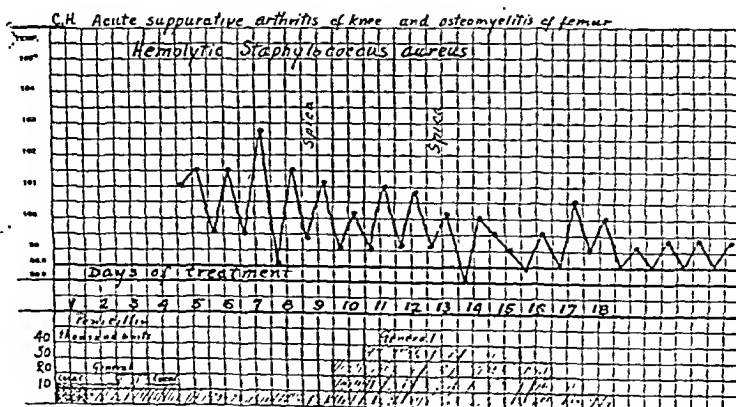 C.H. Acute suppurative arthritis of knee and osteomyelitis of femur
Hemolytic Staphylococcus aureus
TEMP.
104
103
102
101
100
Spica
Spica
Days of treatment
2 3 4 5 6 7 8 9 10 11 12 13 14 15 16 17 18
Penicillin
thousand units
40
30
20
10
General
General
Local